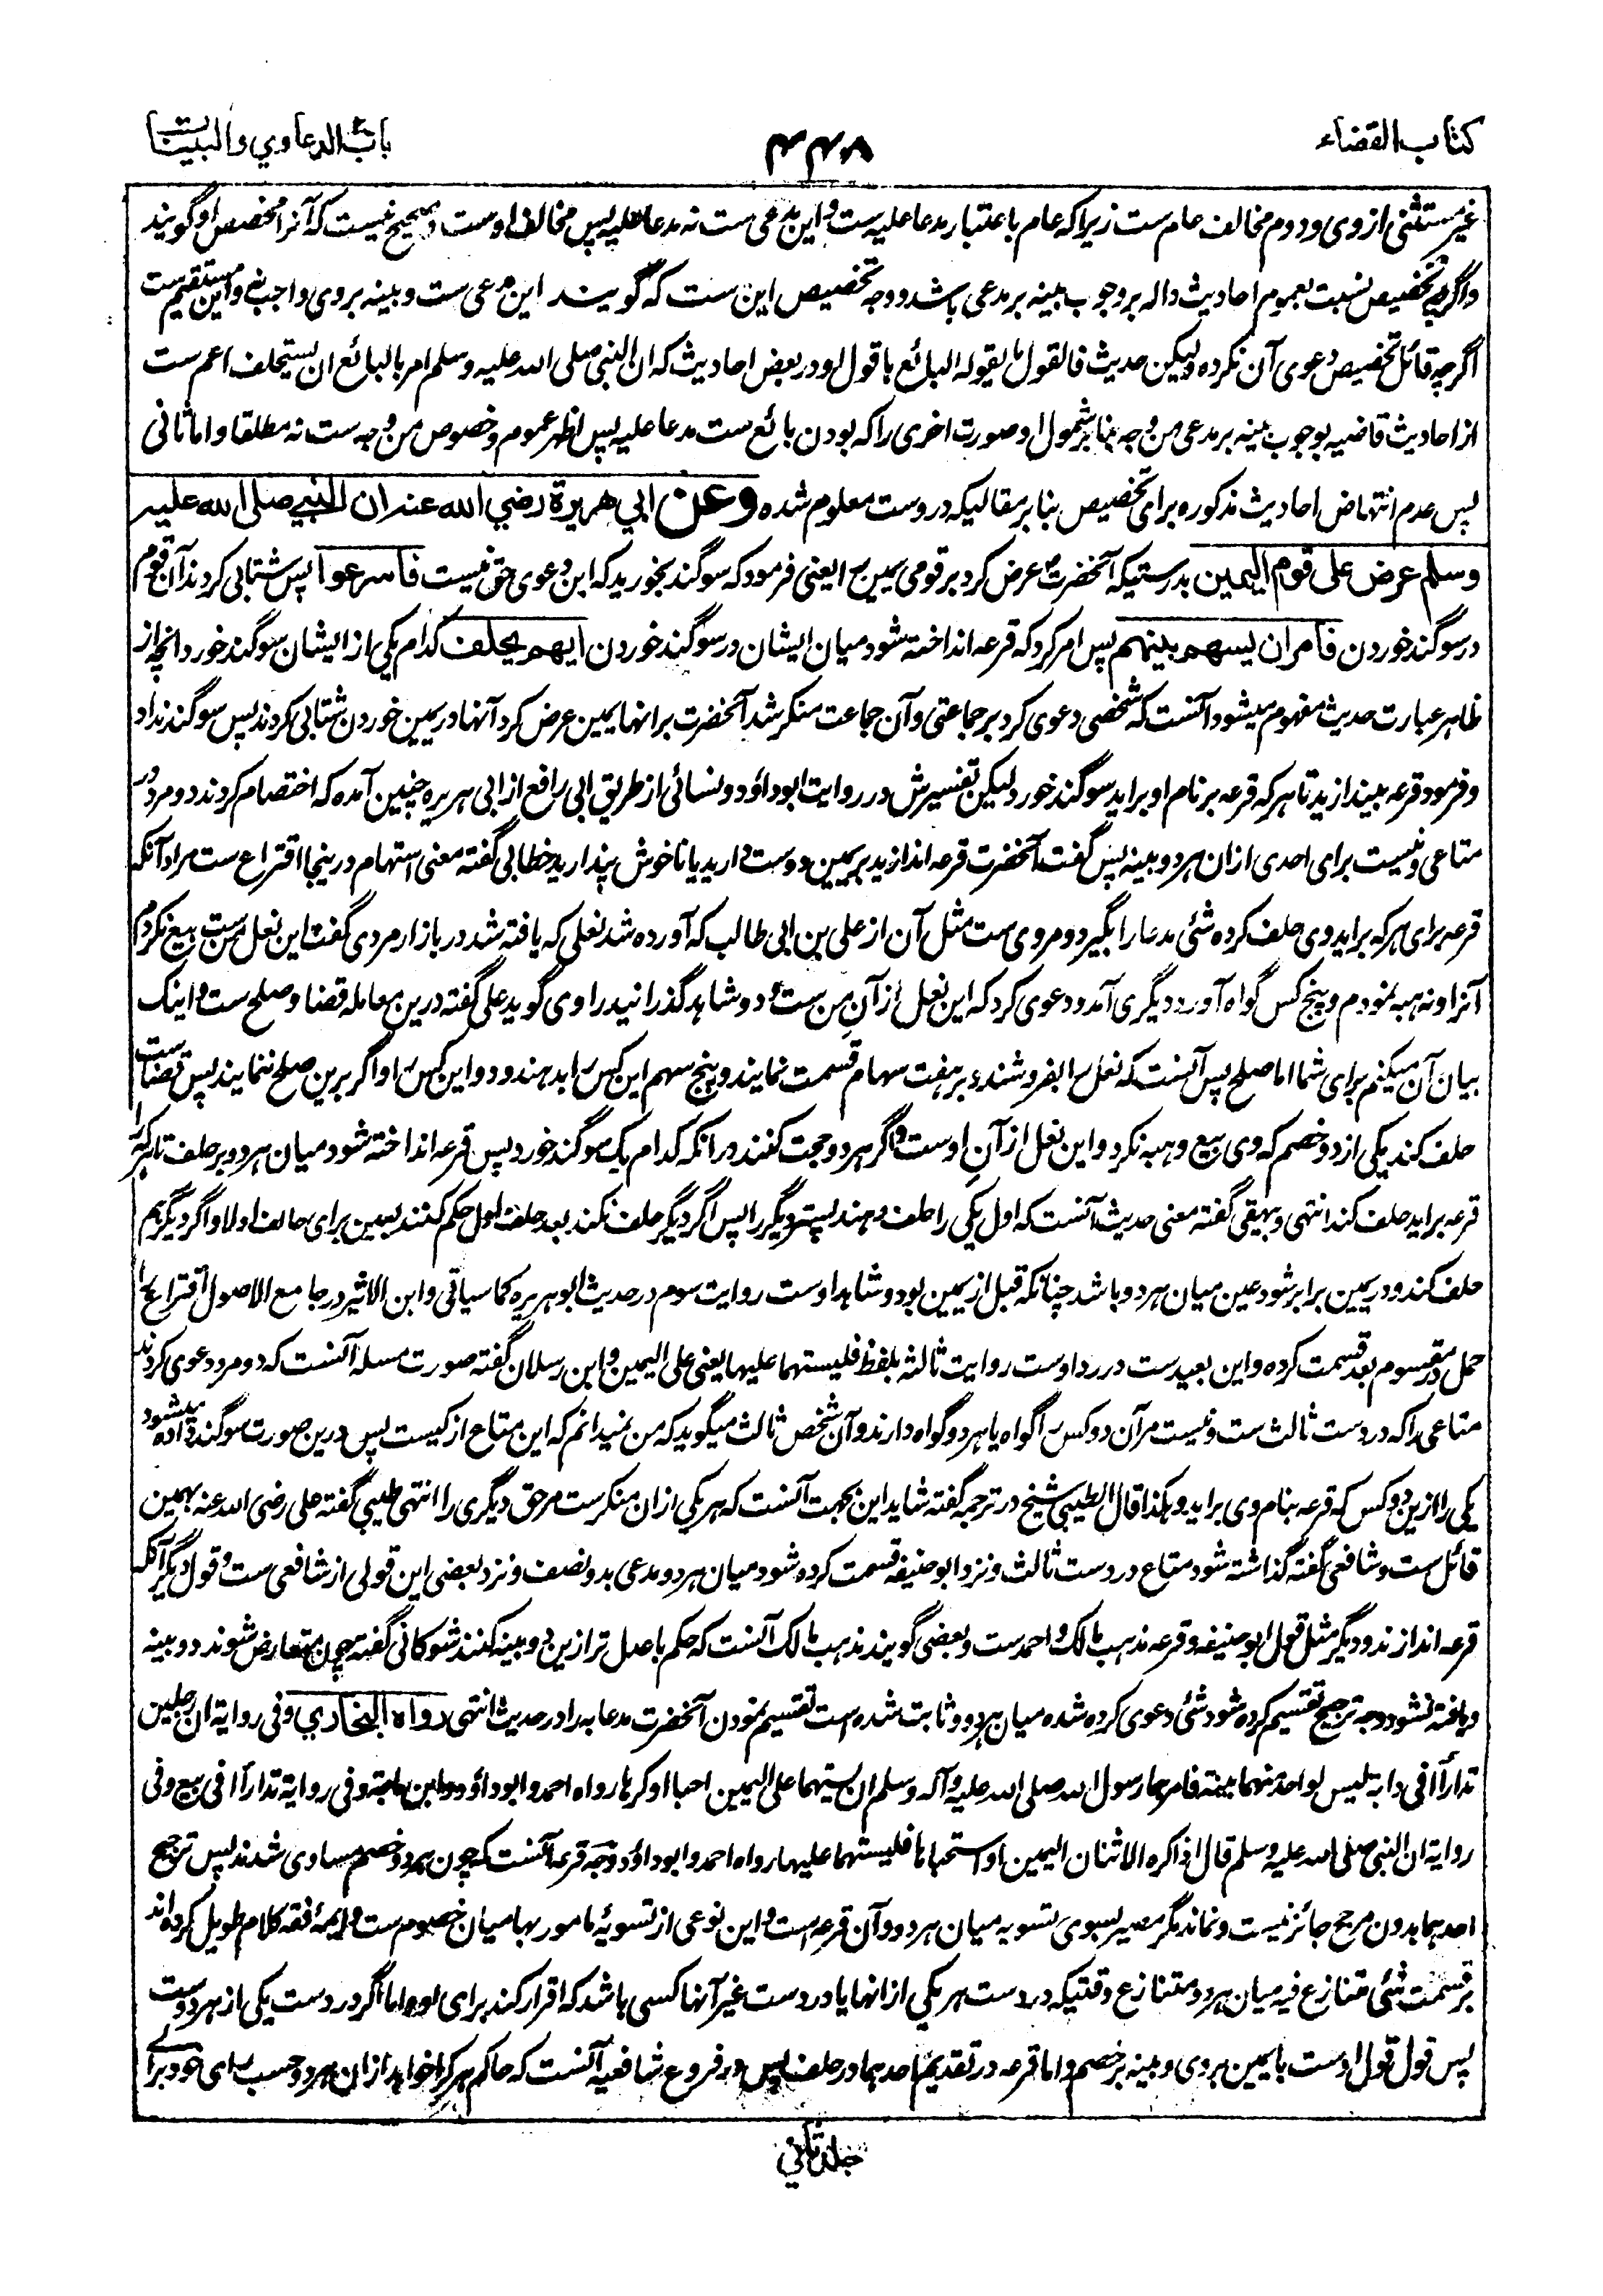 کتاب القضاء
۴۴۸
باب الدعاوي والبینات
غیر مستثنی از وی و دوم مخالف عام ست زیرا که عام باعتبار مدعا علیه ست و این مدعی ست نه مدعا علیه پس مخالف اوست و صحیح نیست که آنرا مخصص او گویند
و اگرچه تخصیص نسبت بعموم احادیث داله بر وجوب بینه بر مدعی باشد و وجه تخصیص این ست که گویند این مدعی ست و بینه بر وی واجب نی و این مستقیم ست
اگرچه قائل تخصیص دعوی آن نکرده ولیکن حدیث فالقول ما یقوله البائع با قول او در بعض احادیث که ان النبی صلی الله علیه وسلم امر بالبائع ان یستحلف اعم ست
از احادیث قاضیه بوجوب بینه بر مدعی من وجه بنا بر شمول او صورت اخری را که بودن بائع ست مدعا علیه پس اظهر عموم و خصوص من وجه ست نه مطلقا و اما ثانی
پس عدم انتهاض احادیث مذکوره برای تخصیص بنا بر مقالیکه در وست معلوم شده وعن ابي هریرة رضي الله عنه ان النبي صلی الله علیه
وسلم عرض علی قوم الیمین بدرستیکه آنحضرت عرض کرد بر قومی یمین را یعنی فرمود که سوگند بخورید که این دعوی حق نیست فاسرعوا پس شتابی کردند آن قوم
در سوگند خوردن فامر ان یسهم بینهم پس امر کرد که قرعه انداخته شود میان ایشان در سوگند خوردن ایهم یحلف کدام یکی از ایشان سوگند خورد و آنچه از
ظاهر عبارت حدیث مفهوم میشود آنست که شخصی دعوی کرد بر جماعتی و آن جماعت منکر شد آنحضرت بر انها یمین عرض کرد آنها در یمین خوردن شتابی کردند پس سوگند نداد
و فرمود قرعه بیندازید تا هر که قرعه بر نام او براید سوگند خورد لیکن تفسیرش در روایت ابو داؤد و نسائی از طریق ابی رافع از ابی هریره چنین آمده که اختصام کردند دو مرد در
متاعی و نیست برای احدی ازان هر دو بینه پس گفت آنحضرت قرعه اندازید بر یمین دوست دارید یا ناخوش پندارید خطابی گفته معنی استهام درینجا اقتراع ست مراد آنکه
قرعه برای هر که براید وی حلف کرده شئ مدعا را بگیرد و مروی ست مثل آن از علی بن ابی طالب که آورده شد نعلی که یافته شد در بازار مردی گفت این نعل من ست بیع نکردم
آنرا و نه هبه نمودم و پنج کس گواه آورد دیگری آمد و دعوی کرد که این نعل از آنِ من ست و دو شاهد گذرانید راوی گوید علی گفته درین معامله قضا و صلح ست و اینک
بیان آن میکنم برای شما اما صلح پس آنست که نعل را بفروشند و بر هفت سهام قسمت نمایند و پنج سهم این کس را بدهند و دو این کس را و اگر برین صلح ننمایند پس قضا ست
حلف کند یکی از دو خصم که وی بیع و هبه نکرد و این نعل از آنِ اوست و اگر هر دو حجت کنند در آنکه کدام یک سوگند خورد پس قرعه انداخته شود میان هر دو بر حلف تا هر کرا
قرعه براید حلف کند انتهی و بیهقی گفته معنی حدیث آنست که اول یکی را حلف دهند پستر دیگر را پس اگر دیگر حلف نکند بعد حلف اول حکم کنند بعین برای حالف اولا و اگر دیگر هم
حلف کند و در یمین برابر شود عین میان هر دو باشد چنانکه قبل از یمین بود و شاهد اوست روایت سوم در حدیث ابو هریره کما سیاتی و ابن الاثیر در جامع الاصول اقتراع را
حمل در مقسوم بعد قسمت کرده و این بعید ست در رد اوست روایت ثالثه بلفظ فلیستهما علیها یعنی علی الیمین و ابن رسلان گفته صورت مسئله آنست که دو مرد دعوی کردند
متاعی را که در دست ثالث ست و نیست مر آن دو کس را گواه یا هر دو گواه دارند و آن شخص ثالث میگوید که من نمیدانم که این متاع از کیست پس درین صورت سوگند داده میشود
یکی را ازین دو کس که قرعه بنام وی براید و هکذا قال الطیبی شیخ در ترجمه گفته شاید این بجهت آنست که هر یکی ازان منکر ست مر حق دیگری را انتهی طیبی گفته علی رضی الله عنه بهمین
قائل ست و شافعی گفته گذاشته شود متاع در دست ثالث و نزد ابو حنیفه قسمت کرده شود میان هر دو مدعی بدو نصف و نزد بعضی این قولی از شافعی ست و قول دیگر آنکه
قرعه اندازند و دیگر مثل قول ابو حنیفه و قرعه مذهب مالک و احمد ست و بعضی گویند مذهب مالک آنست که حکم باعدل تر ازین دو بینه کنند شوکانی گفته چون متعارض شوند دو بینه
و یافته نشود وجه ترجیح تقسیم کرده شود شئ دعوی کرده شده میان هر دو و ثابت شده است تقسیم نمودن آنحضرت مدعا به را در حدیث انتهی رواه البخاري وفی روایة ان رجلین
تدارآ فی دابة لیس لواحد منهما بینة فامرهما رسول الله صلی الله علیه وآله وسلم ان یستهما علی الیمین احبا او کرها رواه احمد و ابو داؤد و ابن ماجة وفی روایة تدارآ فی بیع وفی
روایة ان النبی صلی الله علیه وسلم قال اذا کره الاثنان الیمین او استحباها فلیستهما علیها رواه احمد و ابو داؤد و وجه قرعه آنست که چون هر دو خصم مساوی شدند پس ترجیح
احدهما بدون مرجح جائز نیست و نماند مگر مصیر بسوی تسویه میان هر دو و آن قرعه است و این نوعی از تسویۀ مامور بها میان خصوم ست و ایمۀ فقه کلام طویل کرده اند
بر قسمت شئ متنازع فیه میان هر دو متنازع وقتیکه در دست هر یکی از انها یا در دست غیر آنها کسی باشد که اقرار کند برای او و اما اگر در دست یکی از هر دو ست
پس قول قول اوست با یمین بر وی و بینه بر خصم و اما قرعه در تقدیم احدهما در حلف پس در فروع شافعیه آنست که حاکم هر کرا خواهد ازان هر دو حسب رای خود برای
جلد ثانی